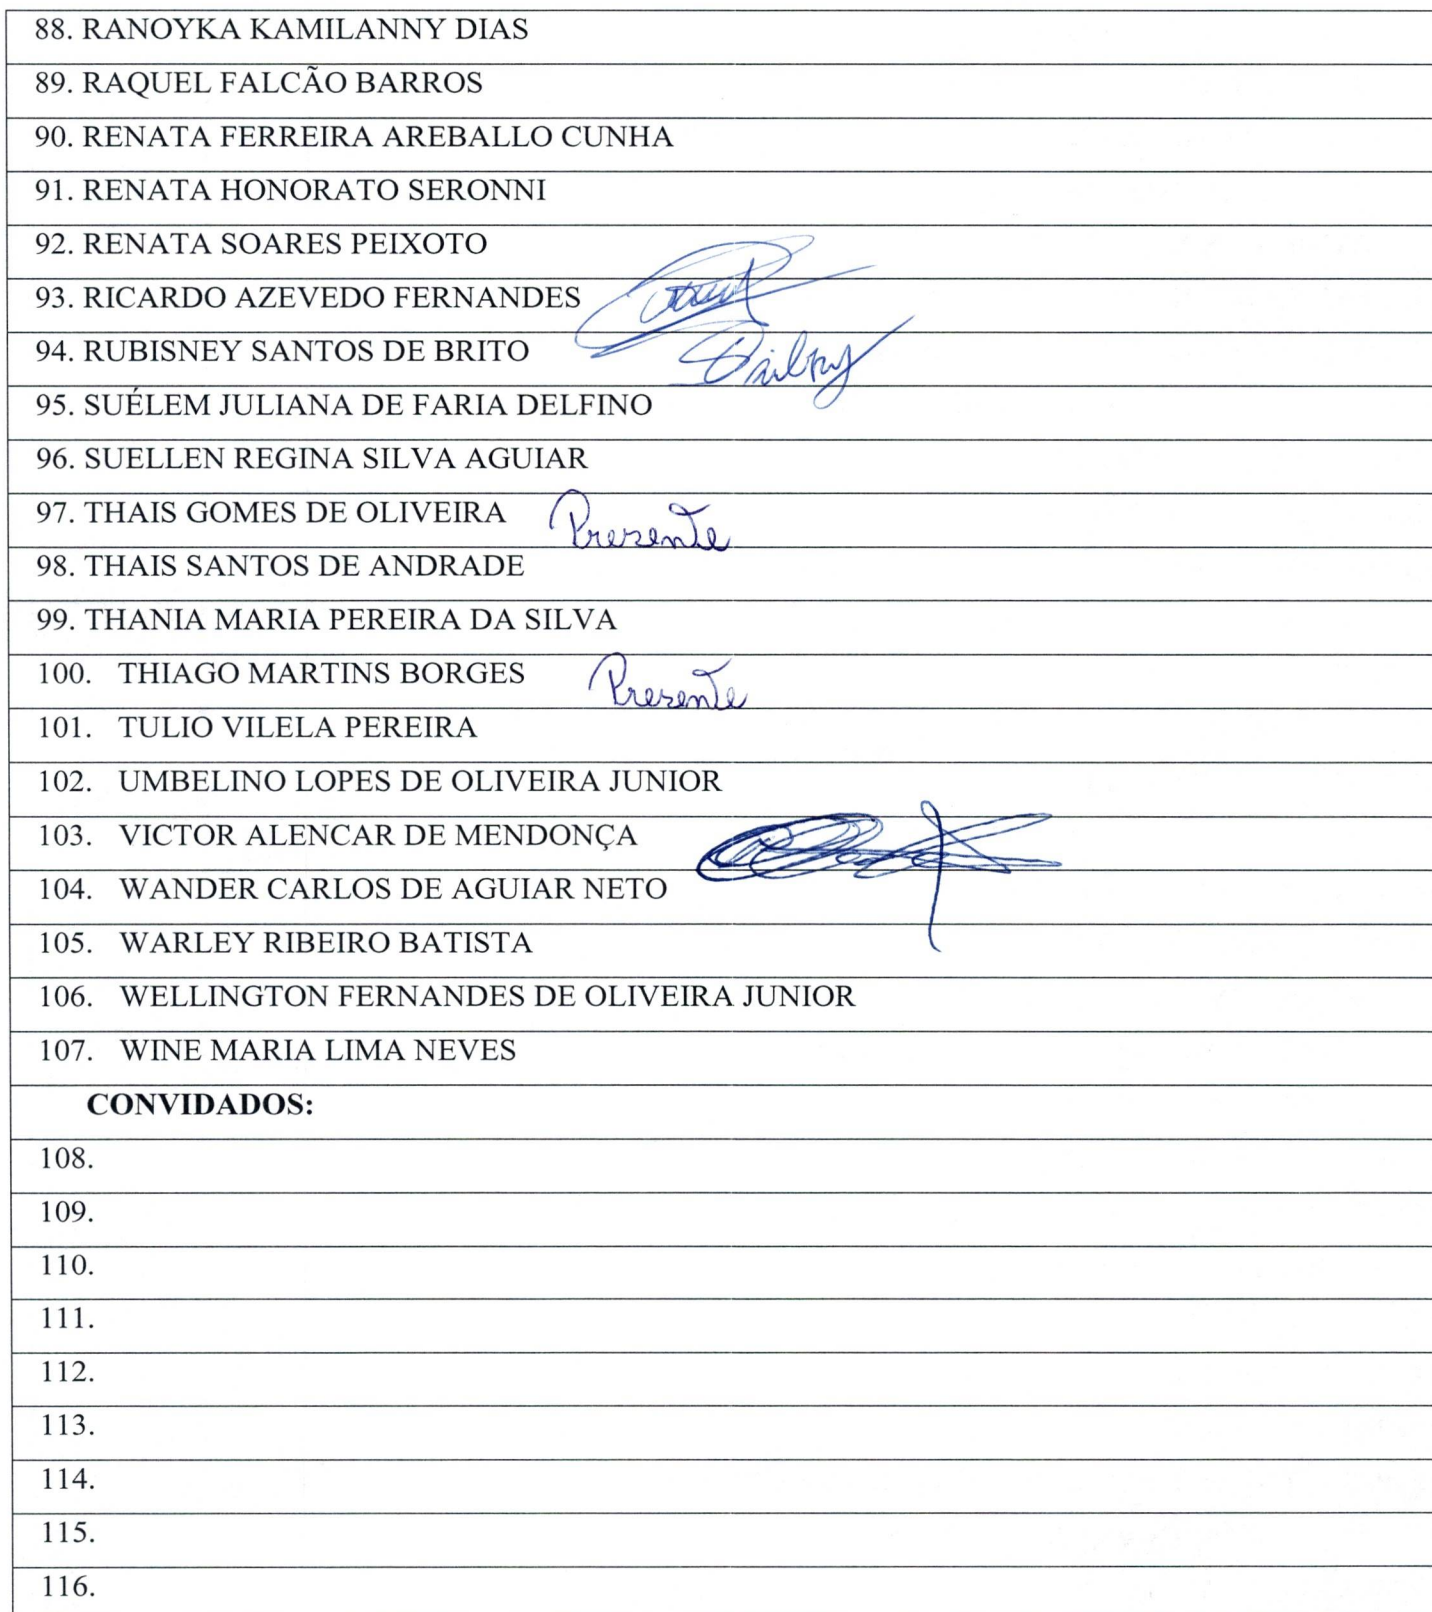 88. RANOYKA KAMILANNY DIAS
89. RAQUEL FALCÃO BARROS
90. RENATA FERREIRA AREBALLO CUNHA
91. RENATA HONORATO SERONNI
92. RENATA SOARES PEIXOTO
93. RICARDO AZEVEDO FERNANDES
94. RUBISNEY SANTOS DE BRITO
95. SUÉLEM JULIANA DE FARIA DELFINO
96. SUELLEN REGINA SILVA AGUIAR
97. THAIS GOMES DE OLIVEIRA Presente
98. THAIS SANTOS DE ANDRADE
99. THANIA MARIA PEREIRA DA SILVA
100. THIAGO MARTINS BORGES Presente
101. TULIO VILELA PEREIRA
102. UMBELINO LOPES DE OLIVEIRA JUNIOR
103. VICTOR ALENCAR DE MENDONÇA
104. WANDER CARLOS DE AGUIAR NETO
105. WARLEY RIBEIRO BATISTA
106. WELLINGTON FERNANDES DE OLIVEIRA JUNIOR
107. WINE MARIA LIMA NEVES
CONVIDADOS:
108.
109.
110.
111.
112.
113.
114.
115.
116.